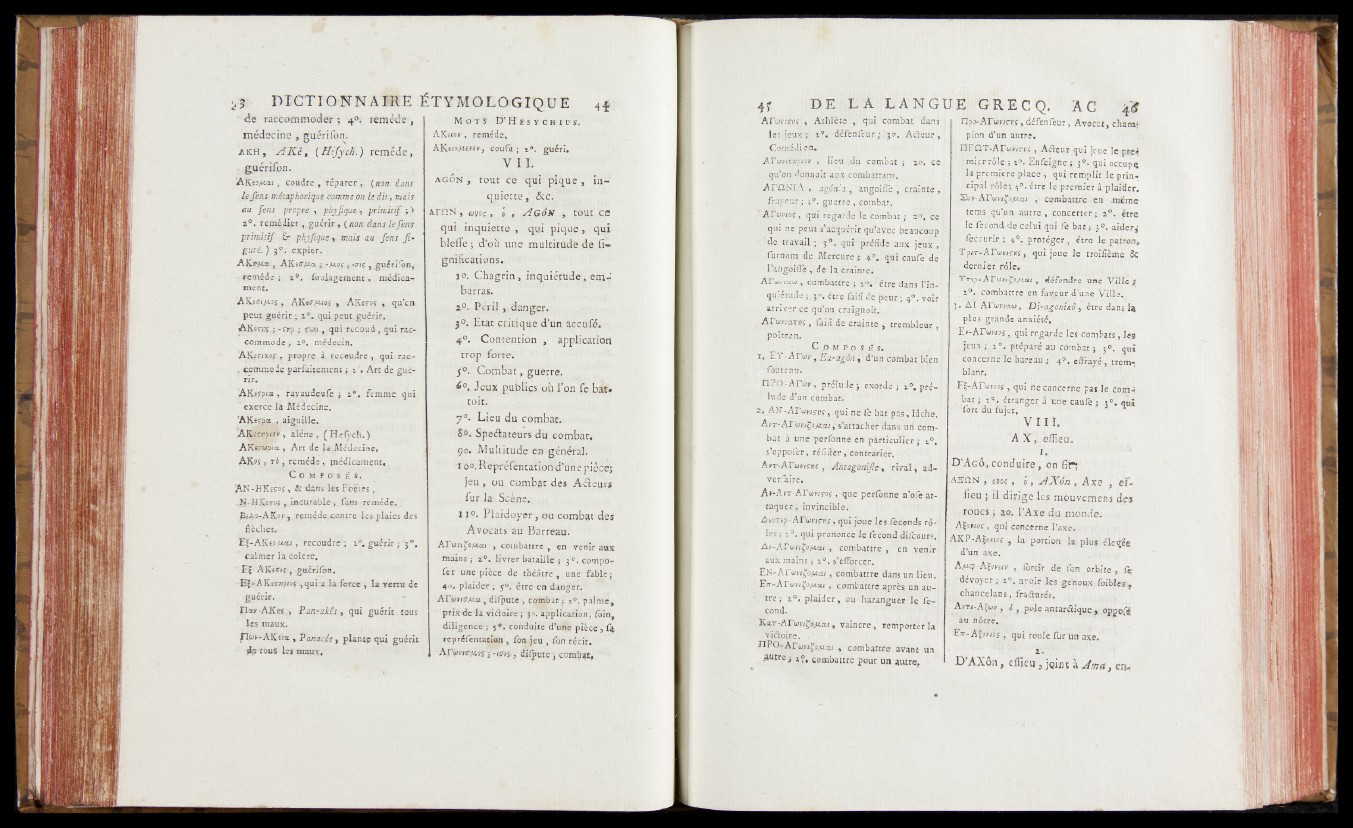 DICTIONNAIRE ÉTYMOLOGIQUE 44
de raccommoder ; 4°. reméde,
médecine, guérison.
AKH, AKé, (Hésych.) reméde,
guérison.
AKεομαι, coudre, réparer, (non dans
le sens métaphorique comme on le dit, mais
au sens propre, physique, primitif ;)
2°. remédier, guérir, (non dans le sens
primitif & physique, mais au sens fi-
guré.) 3°. expier.
guérison,
reméde ; 2°. soulagement, médica-
ment.
AKεσιμος, AKεσμιος, AKεστος, qu'en
peut guérir ; 2°. qui peut guérir.
qui recoud, qui rac-
commode ; 2°. médecin.
AKεστικος, propre à recoudre, qui rac-
commode parfaitement ; 2°. Art de gué-
rir.
AKεστρια, ravaudeuse ; 2°. femme qui
exerce la Médecine.
AKεστρα, aiguille.
alène, (Hesych.)
Art de la Médecine.
AKος, τὸ, reméde, médicament.
COMPOSÉS.
AN-HKεστος, & dans les Poëtes,
N-HKεστος, incurable, sans reméde.
reméde contre les plaies des
flèches.
Εξ-AKεομαι, recoudre ; 2°. guérir ; 3°.
calmer la colère.
Εξ-AKεσις, guérison.
qui a la force, la vertu de
guérir.
Παν-AKης, Pan-akès, qui guérit tous
les maux.
Παν-AKεια, Panacée, plante qui guérit
de tous les maux.
MOTS D'HESYCHIUS.
AKειον, reméde.
cousu ; 2°. guéri.
VII.
AGÔN, tout ce qui pique, in-
quiette, &c.
ΑΓΩΝ, ωνος, ὁ, AGôN, tout ce
qui inquiette, qui pique, qui
blesse ; d'où une multitude de si-
gnifications.
1o. Chagrin, inquiétude, em-
barras.
2o. Péril, danger.
3o. Etat critique d'un accusé.
4o. Contention, application
trop forte.
5o. Combat, guerre.
6o. Jeux publics où l'on se bat-
toit.
7o. Lieu du combat.
8o. Spectateurs du combat.
9o. Multitude en général.
10o. Représentation d'une pièce;
jeu, ou combat des Acteurs
sur la Scène.
11o. Plaidoyer, ou combat des
Avocats au Barreau.
ΑΓωνιζομαι, combattre, en venir aux
mains ; 2°. livrer bataille ; 3°. compo-
ser une pièce de théâtre, une fable ;
4o. plaider ; 5°. être en danger.
ΑΓωνισμα, dispute, combat ; 2°. palme,
prix de la victoire ; 3o. application, soin,
diligence ; 5°. conduite d'une pièce, sa
représentation, son jeu, son récit.
ΑΓωνισμος ; -ισις, dispute, combat.
45 DE LA LANGUE GRECQ. AC 46
ΑΓωνιστης, Athlète, qui combat dans
les jeux ; 2°. défenseur ; 3o. Acteur,
Comédien.
lieu du combat ; 2o. ce
qu'on donnait aux combattans.
ΑΓΩΝΙΑ, agônia, angoisse, crainte,
frayeur ; 2°. guerre, combat.
ΑΓωνιος, qui regarde le combat ; 2o. ce
qui ne peut s'acquérir qu'avec beaucoup
de travail ; 3°. qui préside aux jeux,
surnom de Mercure ; 4°. qui cause de
l'angoisse, de la crainte.
ΑΓωνιαω, combattre ; 2°. être dans l'in-
quiétude ; 3°. être saisi de peur ; 4°. voir
arriver ce qu'on craignoit.
ΑΓωνιατης, saisi de crainte, trembleur,
poltron.
COMPOSÉS.
1. ΕΥ-ΑΓων, Eu-agôn, d'un combat bien
soutenu.
ΠΡΟ-ΑΓων, prélude ; exorde ; 2°. pré-
lude d'un combat.
2. ΑΝ-ΑΓωνιστος, qui ne se bat pas, lâche.
Αντ-ΑΓωνιζομαι, s'attacher dans un com-
bat à une personne en particulier ; 2°.
s'opposer, résister, contrarier.
Αντ-ΑΓωνιστης, Antagoniste, rival, ad-
versaire.
Αν-Αντ-ΑΓωνιστος, que personne n'ose at-
taquer, invincible.
Δευτερ-ΑΓωνιστης, qui joue les seconds rô-
les ; 2°. qui prononce le second discours.
Δι-ΑΓωνιζομαι, combattre, en venir
aux mains ; 2°. s'efforcer.
ΕΝ-ΑΓωνιζομαι, combattre dans un lieu.
Επ-ΑΓωνιζομαι, combattre après un au-
tre ; 2°. plaider, ou haranguer le se-
cond.
Κατ-ΑΓωνιζομαι, vaincre, remporter la
victoire.
ΠΡΟ-ΑΓωνιζομαι, combattre avant un
autre ; 2°. combattre pour un autre.
Προ-ΑΓωνιστης, défenseur, Avocat, cham-
pion d'un autre.
ΠΡΩΤ-ΑΓωνιστης, Acteur qui joue le pre-
mier rôle ; 2°. Enseigne ; 3°. qui occupe
la premiere place, qui remplit le prin-
cipal rôle ; 4°. être le premier à plaider.
Συν-ΑΓωνιζομαι, combattre en même
tems qu'un autre, concerter ; 2°. être
le second de celui qui se bat ; 3°. aider,
secourir ; 4°. protéger, être le patron.
Τριτ-ΑΓωνιστης, qui joue le troisième &
dernier rôle.
Υπερ-ΑΓωνιζομαι, défendre une Ville ;
2°. combattre en faveur d'une Ville.
3. ΔΙ-ΑΓωνιαω, Di-agoniaô, être dans la
plus grande anxiété.
Εν-ΑΓωνιος, qui regarde les combats, les
jeux ; 2°. préparé au combat ; 3°. qui
concerne le bareau ; 4°. effrayé, trem-
blant.
Εξ-ΑΓωνιος, qui ne concerne pas le com-
bat ; 2°. étranger à une cause ; 3°. qui
sort du sujet.
VIII.
AX, essieu.
1.
D'AGô, conduire, on fit
ΑΞΩΝ, ονος, ὁ, AXôn, Axe, es-
sieu ; il dirige les mouvemens des
roues ; 2o. l'Axe du monde.
Αξονιος, qui concerne l'axe.
la portion la plus élevée
d'un axe.
sortir de son orbite, se
dévoyer ; 2°. avoir les genoux foibles,
chancelans, fracturés.
pole antarctique, opposé
au nôtre.
Επ-Αξονιος, qui roule sur un axe.
2.
D'AXôn, essieu, joint à Ama, en-